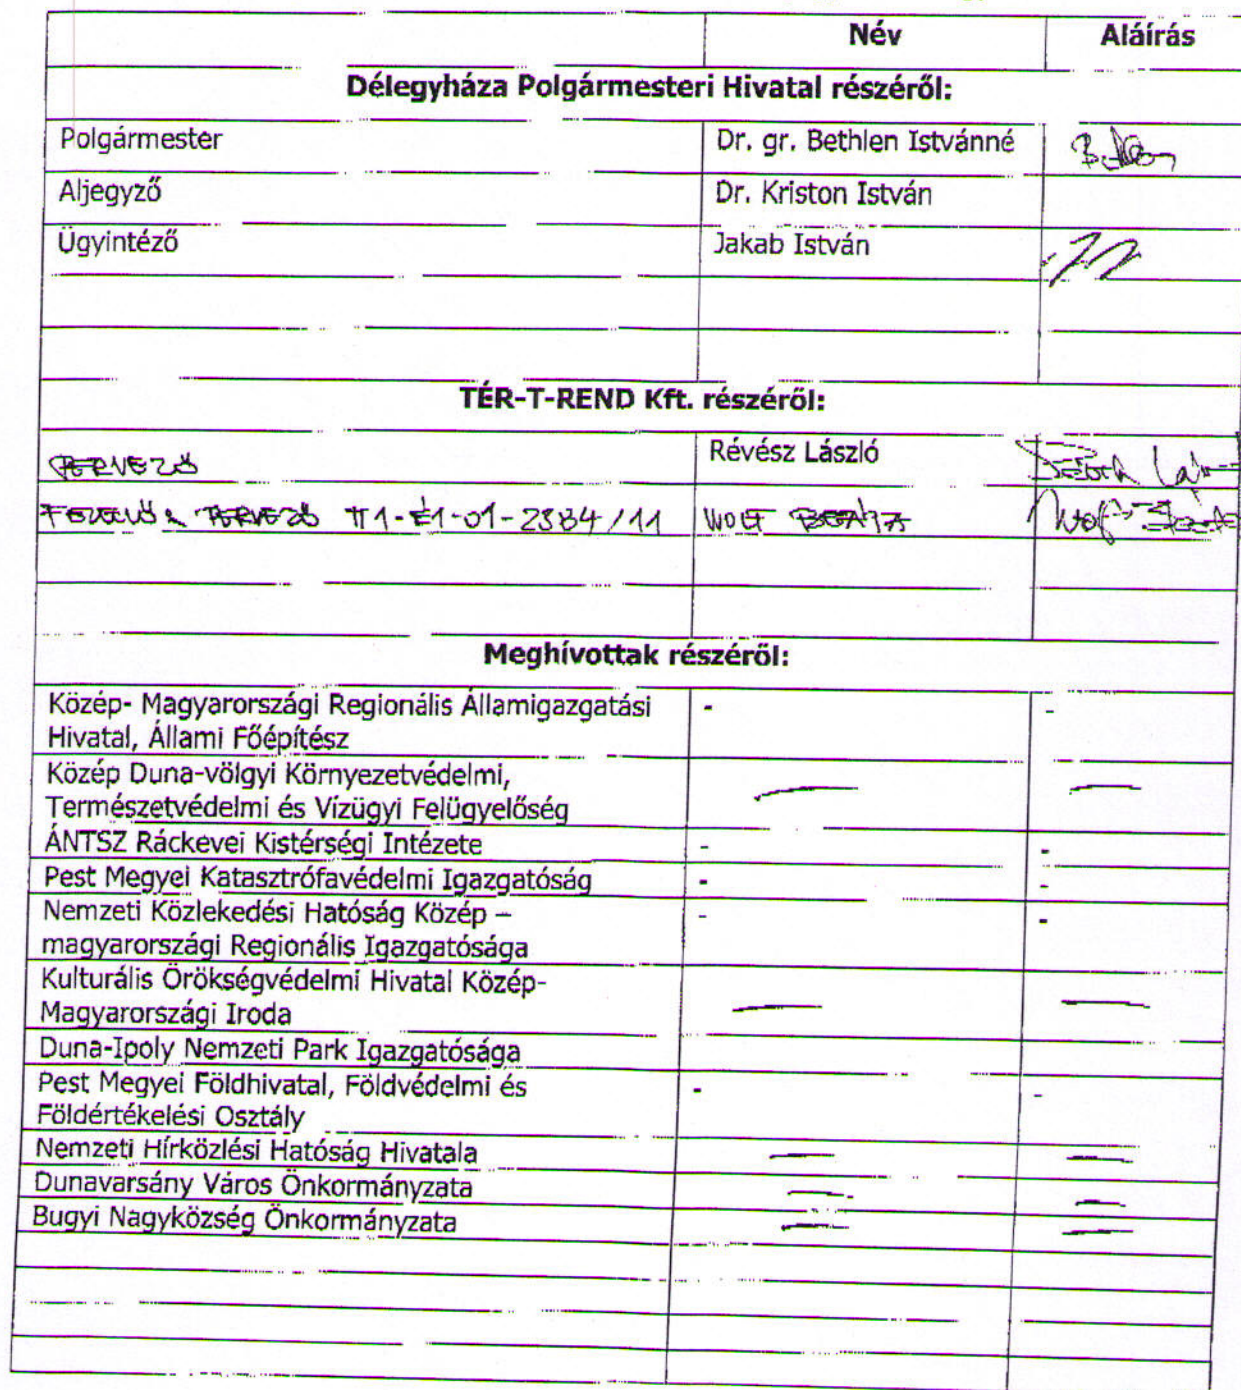 Név Aláírás
Délegyháza Polgármesteri Hivatal részéről:
Polgármester Dr. gr. Bethlen Istvánné
Aljegyző Dr. Kriston István
Ügyintéző Jakab István
TÉR-T-REND Kft. részéről:
TERVEZŐ Révész László
FELELŐS TERVEZŐ TT1-É1-01-2384/11 WOLF BEÁTA
Meghívottak részéről:
Közép- Magyarországi Regionális Államigazgatási - -
Hivatal, Állami Főépítész
Közép Duna-völgyi Környezetvédelmi, — —
Természetvédelmi és Vízügyi Felügyelőség
ÁNTSZ Ráckevei Kistérségi Intézete - -
Pest Megyei Katasztrófavédelmi Igazgatóság - -
Nemzeti Közlekedési Hatóság Közép – - -
magyarországi Regionális Igazgatósága
Kulturális Örökségvédelmi Hivatal Közép-
Magyarországi Iroda — —
Duna-Ipoly Nemzeti Park Igazgatósága
Pest Megyei Földhivatal, Földvédelmi és - -
Földértékelési Osztály
Nemzeti Hírközlési Hatóság Hivatala — —
Dunavarsány Város Önkormányzata — —
Bugyi Nagyközség Önkormányzata — —